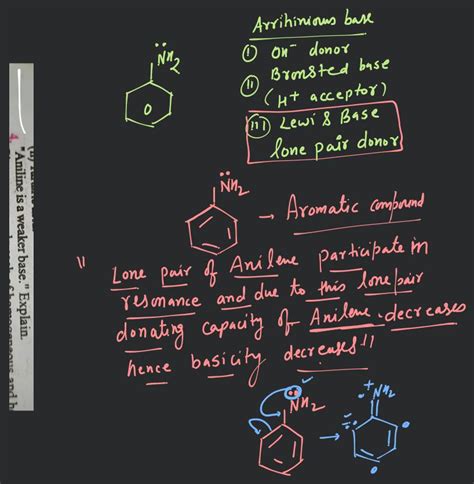 Arrihinious base
① OH⁻ donor
(ii) Bronsted base
(H+ acceptor)
(iii) Lewis Base
lone pair donor
N̈H2
N̈H2
→ Aromatic compound
" Lone pair of Anilene participate in
resonance and due to this lone pair
donating capacity of Anilene decreases
hence basicity decreases "
NH2
→
+NH2
4. "Aniline is a weaker base." Explain.